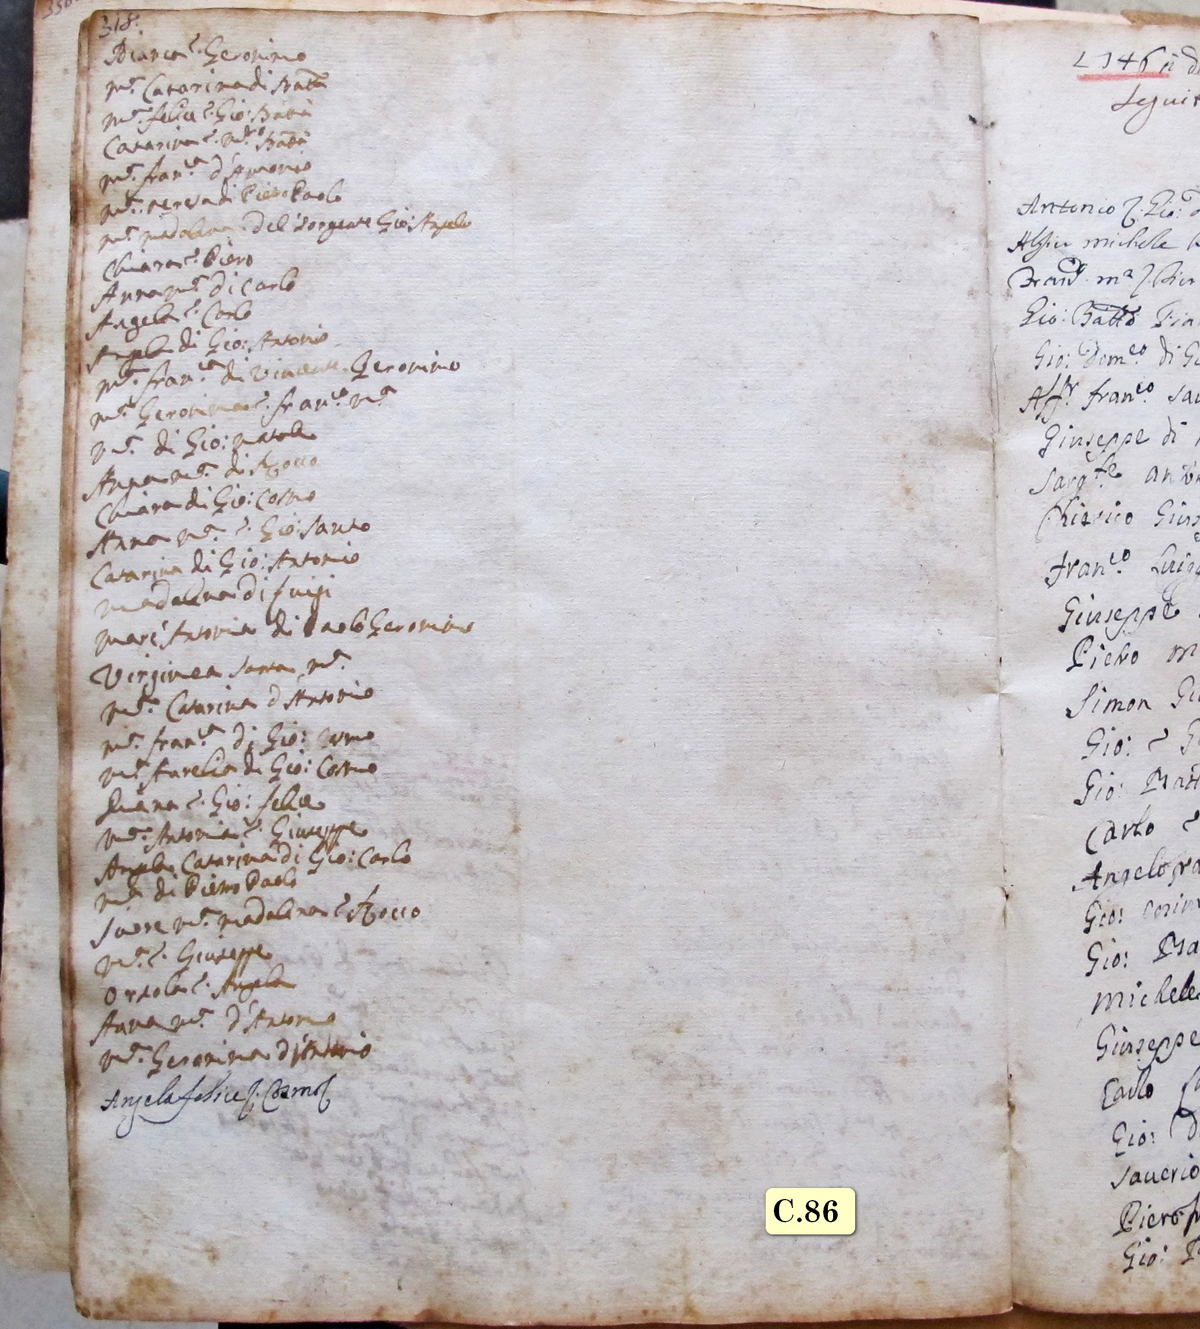 318:
Bianca q. Geronimo
m.a Catarina di Batta
m.a felice q. Gio: Batta
Catarina q. m.ro Batta
m.a fran.ca d'Antonio
m.a teresa di Piero Paolo
m.a madalena del sorgente Gio: Angelo
Chiara q. Piero
Anna m.a di Carlo
Angela q. Carlo
Angela di Gio: Antonio
m.a fran.ca di Vincente Geronimo
m.a Geronima q. fran.co m.a
m.a di Gio: natale
Anna m.a di Rocco
Chiara di Gio: Cosmo
Anna m.a q. Gio: Santo
Catarina di Gio: Antonio
madalena di Luigi
mari'Antonia di Paolo Geronimo
Virginea Santa m.a
m.a Catarina d'Antonio
m.a fran.ca di Gio:
m.a Aurelia di Gio: Cosmo
q. Gio: felice
m.a Antonia q. Giuseppe
Angela Catarina di Gio: Carlo
m.a di Piero Paolo
Suore m.a madalena q. Rocco
m.a q. Giuseppe
Orsola q. Angelo
Anna m.a d'Antonio
m.a Geronima d'Antonio
Angela felice q. Cosmo
C.86
1746 a d
Seguit
Antonio q. Gio:
Alfier michele
Brand. m.a q.
Gio: Batta
Gio: Dom.co di G
Aff.r fran.co sau
Giuseppe di
Sarg.te anton
Chierico Gius
fran.co Luigi
Giuseppe
Piero m
Simon Gi
Gio: q G
Gio: Batt
Carlo q
Angelo fra
Gio: Cosim
Gio: Ba
michele
Giuseppe
Carlo q
Gio: D
Saverio
Piero fr
Gio: P